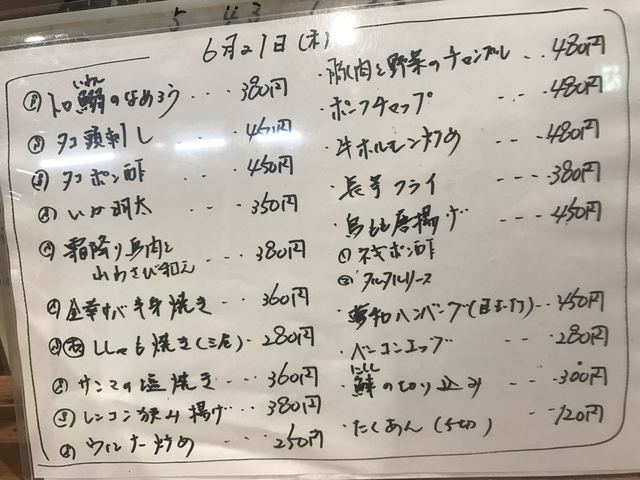 6月21日(木)
トロ鰯のなめろう ・・・ 380円
いわし
タコ頭刺し ・・・ 450円
タコポン酢 ・・・ 450円
いか明太 ・・・ 350円
霜降り鳥肉と
山わさび和え ・・・ 380円
金華サバ半身焼き ・・・ 360円
ししゃも焼き(三尾) ・・ 280円
サンマの塩焼き ・・・ 360円
レンコン挟み揚げ ・・・ 380円
ウィンナー炒め ・・・ 250円
・豚肉と野菜のチャンプル ・・ 480円
・ポークチャップ ・・・ 480円
・牛ホルモン炒め ・・・ 480円
・長芋フライ ・・・ 380円
・鳥もも唐揚げ ・・・ 450円
①ネギポン酢
②タルタルソース
・ハンバーグ(目玉付) ・・ 350円
・ベーコンエッグ ・・・ 280円
・鰊の切り込み ・・・ 300円
にしん
・たくあん(5切) ・・ 120円